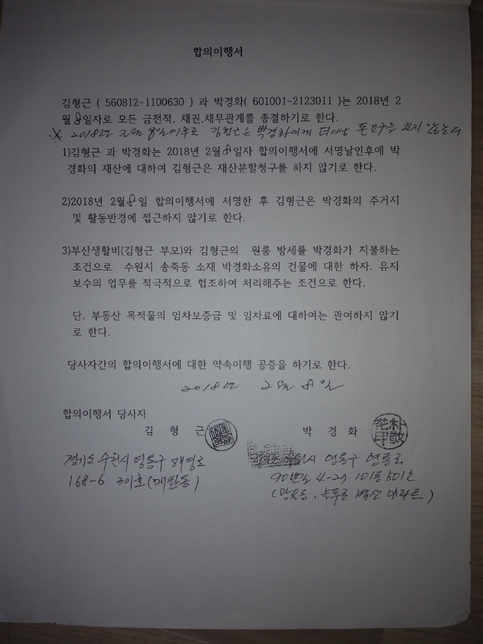 합의이행서
김형근 ( 560812-1100630 ) 과 박경화( 601001-2123011 )는 2018년 2
월 8일자로 모든 금전적, 채권,채무관계를 종결하기로 한다.
※ 2018년 2월 8일이후로 김형근은 박경화에게 더이상 돈요구를 하지 않는다
1)김형근 과 박경화는 2018년 2월 8일자 합의이행서에 서명날인후에 박
경화의 재산에 대하여 김형근은 재산분할청구를 하지 않기로 한다.
2)2018년 2월 8일 합의이행서에 서명한 후 김형근은 박경화의 주거지
및 활동반경에 접근하지 않기로 한다.
3)부산생활비(김형근 부모)와 김형근의 원룸 방세를 박경화가 지불하는
조건으로 수원시 송죽동 소재 박경화소유의 건물에 대한 하자. 유지
보수의 업무를 적극적으로 협조하여 처리해주는 조건으로 한다.
단. 부동산 목적물의 임차보증금 및 임차료에 대하여는 관여하지 않기
로 한다.
당사자간의 합의이행서에 대한 약속이행 공증을 하기로 한다.
2018년 2월 8일
합의이행서 당사자
김 형 근
박 경 화
경기도 수원시 영통구 매영로
168-6 301호(매탄동)
시 영통구 영통로
90번길 4-27 101동 501호
(망포동, 늘푸른 벽산 아파트)